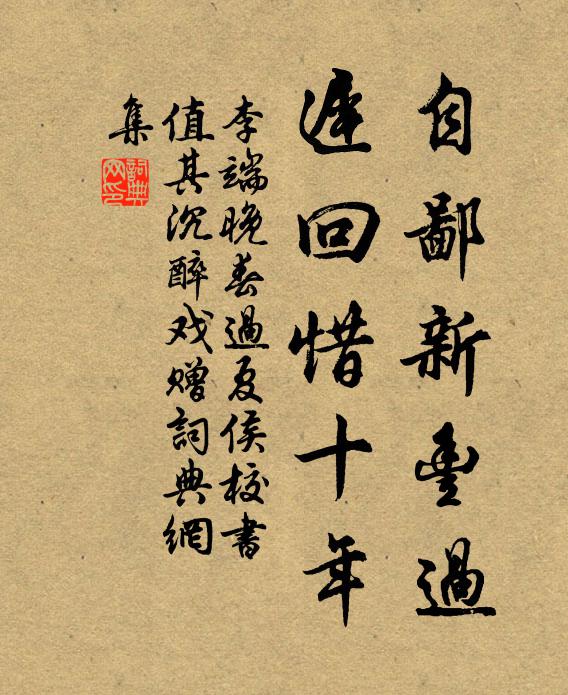 自鄙新豊過
遲回惜十年
李端晚春過夏侯校書
值其沉醉戏贈詞典網
集
詞典
网印